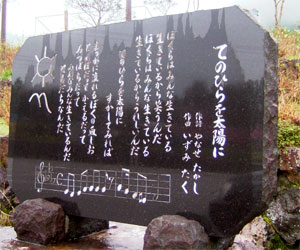 てのひらを太陽に
作詞 やなせ たかし
作曲 いずみ たく
ぼくらはみんな生きている
生きているから笑うんだ
ぼくらはみんな生きている
生きているからうれしいんだ
手のひらを太陽に
すかしてみれば
まっかに流れるぼくの血しお
みんなみんな生きているんだ
友だちなんだ